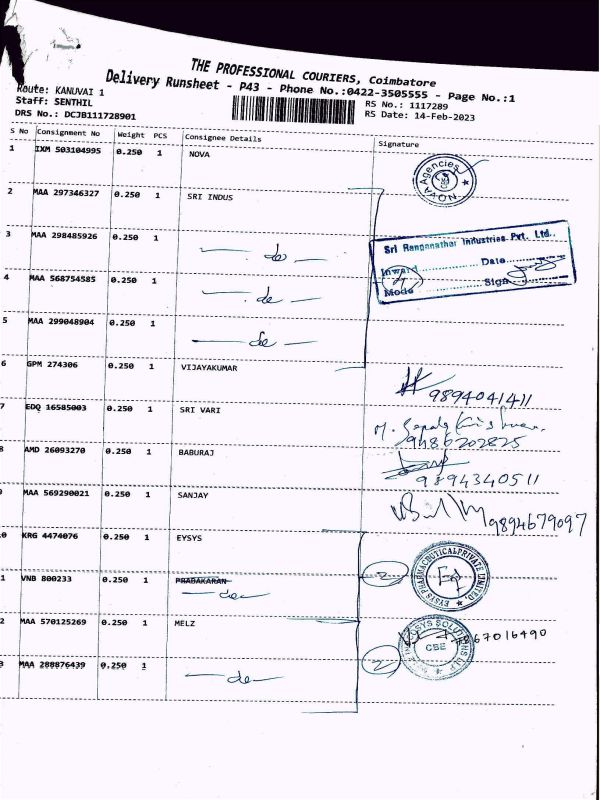 THE PROFESSIONAL COURIERS, Coimbatore
Delivery Runsheet - P43 - Phone No.:0422-3505555 - Page No.:1
Route: KANUVAI 1
Staff: SENTHIL
RS No.: 1117289
DRS No.: DCJB111728901
RS Date: 14-Feb-2023
S No Consignment No Weight PCS Consignee Details Signature
1 IXM 503104995 0.250 1 NOVA
NOVA Agencies CBE
2 MAA 297346327 0.250 1 SRI INDUS
3 MAA 298485926 0.250 1 — do —
Sri Ranganathar Industries Pvt. Ltd.
Inward Date
Mode Sign
4 MAA 568754585 0.250 1 — do —
5 MAA 299048904 0.250 1 — do —
6 GPM 274306 0.250 1 VIJAYAKUMAR
9894041411
7 EDQ 16585003 0.250 1 SRI VARI
9486202825
8 AMD 26093270 0.250 1 BABURAJ
9894340511
9 MAA 569290021 0.250 1 SANJAY
9894679097
0 KRG 4474076 0.250 1 EYSYS
EYSYS PHARMACEUTICAL PRIVATE LIMITED
1 VNB 800233 0.250 1 PRABAKARAN
— do —
2
2 MAA 570125269 0.250 1 MELZ
SOLUTIONS LLP CBE
67016490
3 MAA 288876439 0.250 1 — do —
2